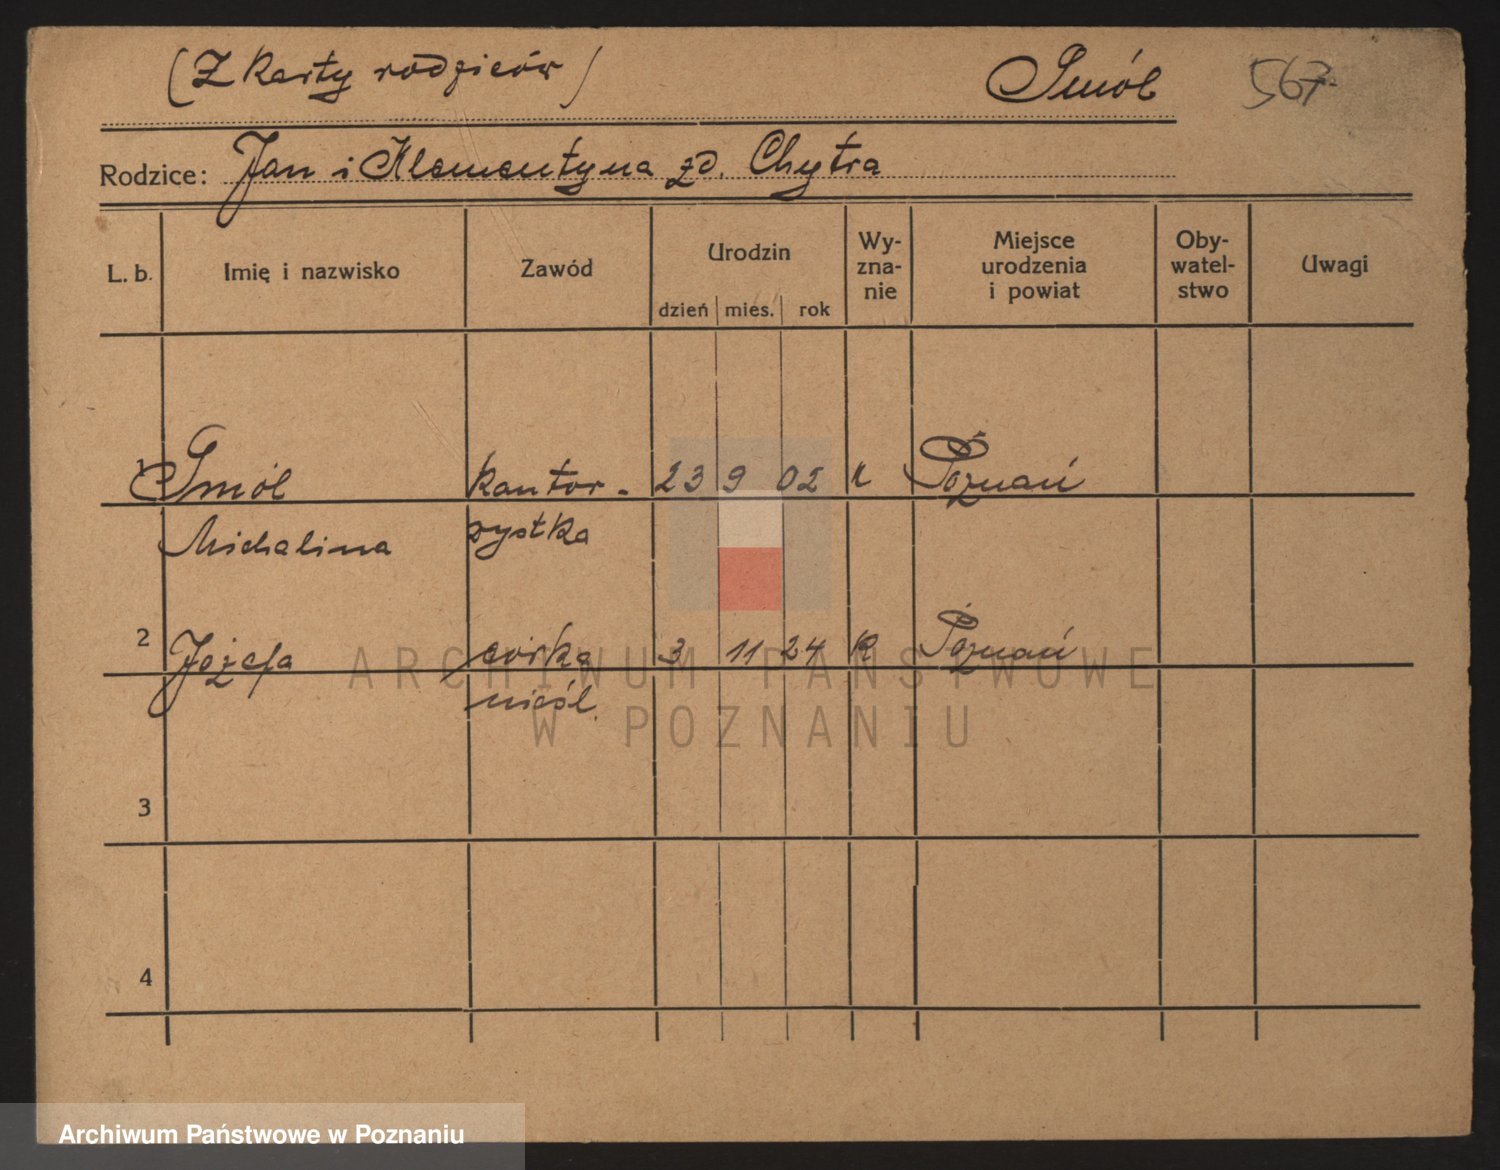 (Z karty rodziców) Smól 567
Rodzice: Jan i Klementyna zd. Chytra
L. b. Imię i nazwisko Zawód Urodzin dzień mies. rok Wy-zna-nie Miejsce urodzenia i powiat Oby-watel-stwo Uwagi
1 Smól kantor- 23 9 02 k Poznań
Michalina zystka
2 Józefa córka 3 11 24 k Poznań
nieśl.
3
4
ARCHIWUM PAŃSTWOWE
W POZNANIU
Archiwum Państwowe w Poznaniu